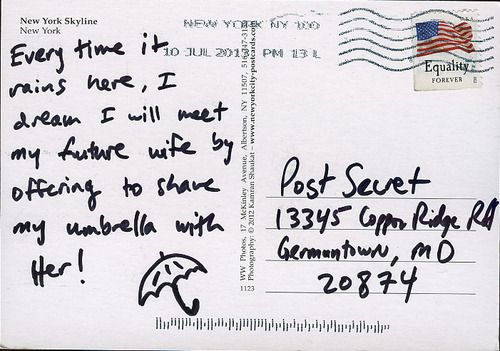 New York Skyline
New York
Every time it
rains here, I
dream I will meet
my future wife by
offering to share
my umbrella with
Her!
NEW YORK NY 100
10 JUL 2013 PM 13 L
Equality
FOREVER
WW Photos, 17 McKinley Avenue, Albertson, NY 11507, 516-247-31
Photography: © 2012 Kamran Shaukat – www.newyorkcity-postcards.co
1123
Post Secret
13345 Copper Ridge Rd
Germantown, MD
20874